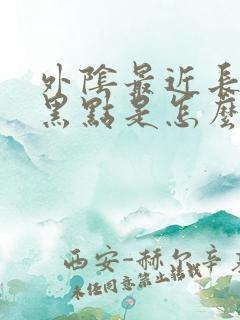 外陰最近長
黑點是怎麼
西安-赫尔辛
未经同意禁止转载